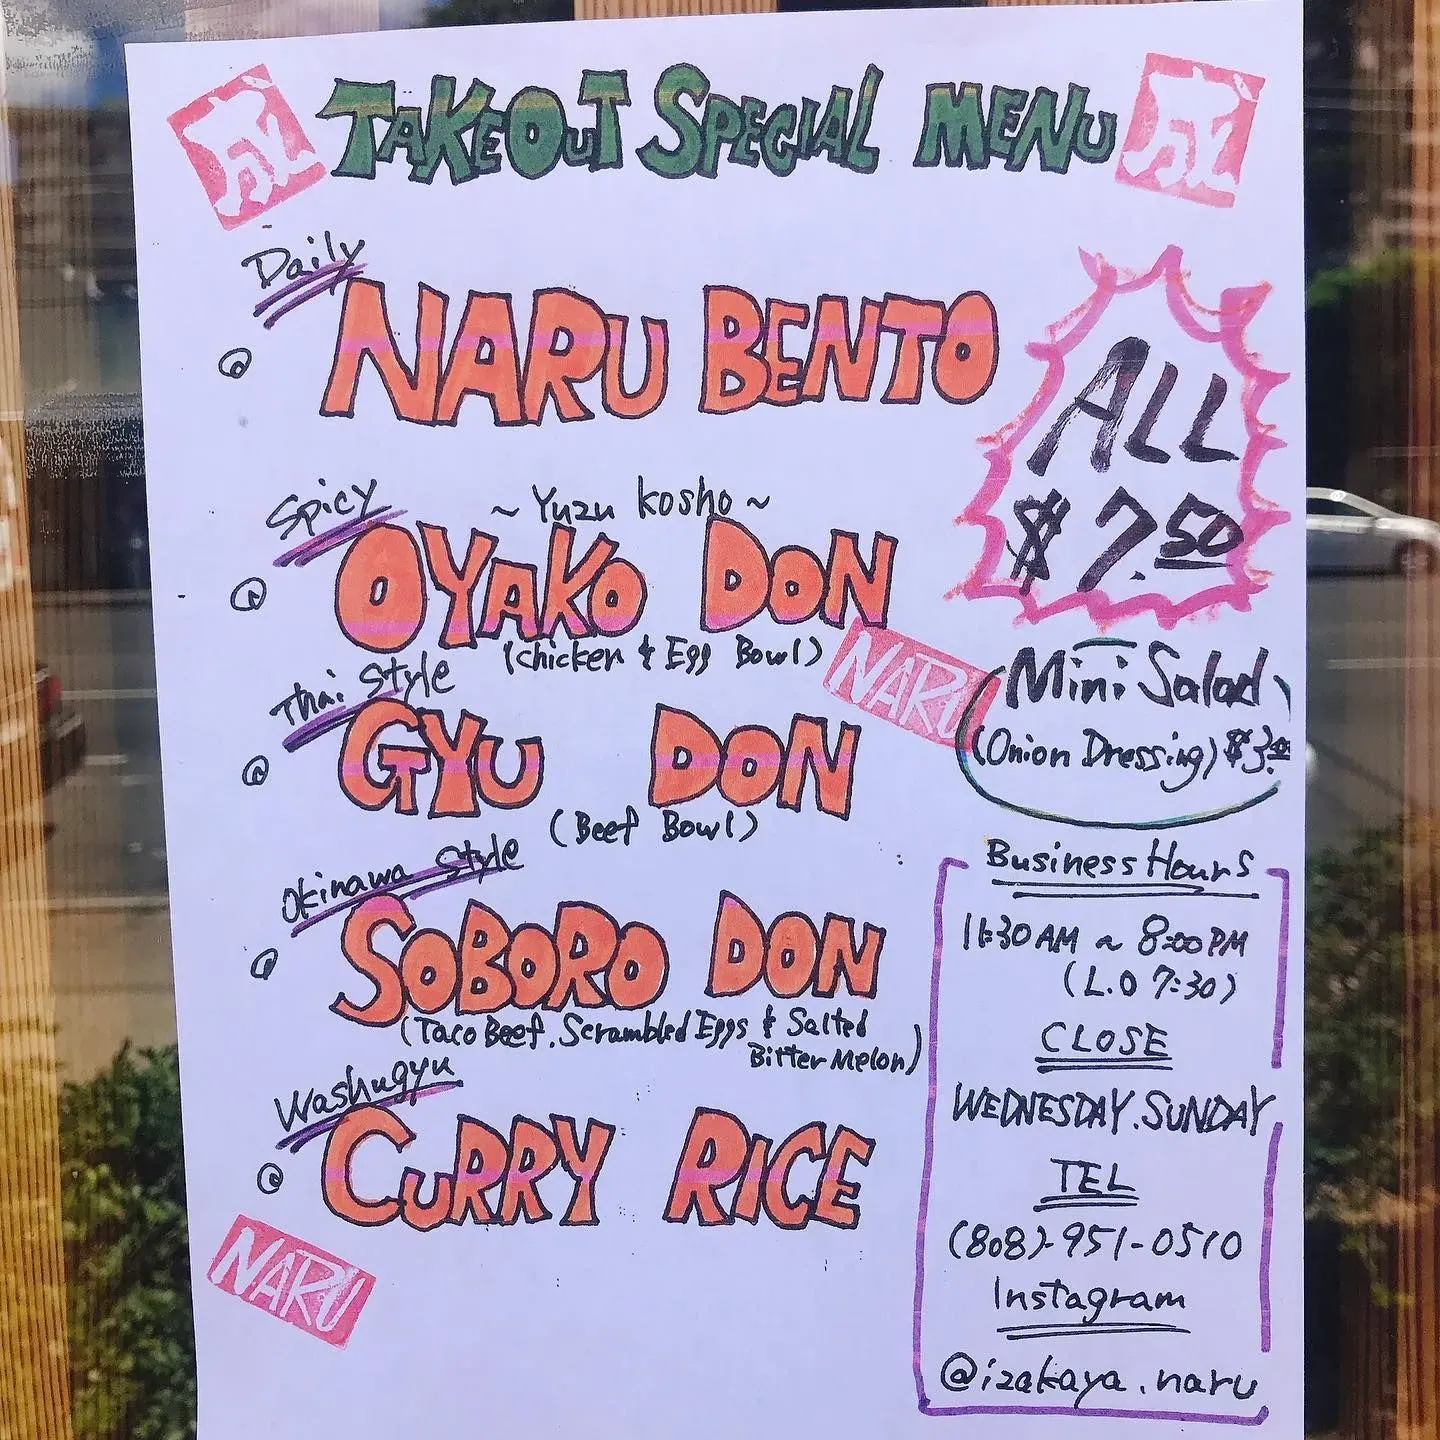 成 TAKEOUT SPECIAL MENU 成
Daily
@ NARU BENTO
ALL
$7.50
Spicy
~ Yuzu Kosho ~
@ OYAKO DON
(Chicken & Egg Bowl)
NARU
Mini Salad
(Onion Dressing) $3.00
Thai Style
@ GYU DON
(Beef Bowl)
Okinawa Style
@ SOBORO DON
(Taco Beef. Scrambled Eggs & Salted
Bitter Melon)
Washugyu
@ CURRY RICE
NARU
Business Hours
11:30 AM ~ 8:00 PM
(L.O 7:30)
CLOSE
WEDNESDAY.SUNDAY
TEL
(808)-951-0510
Instagram
@izakaya.naru